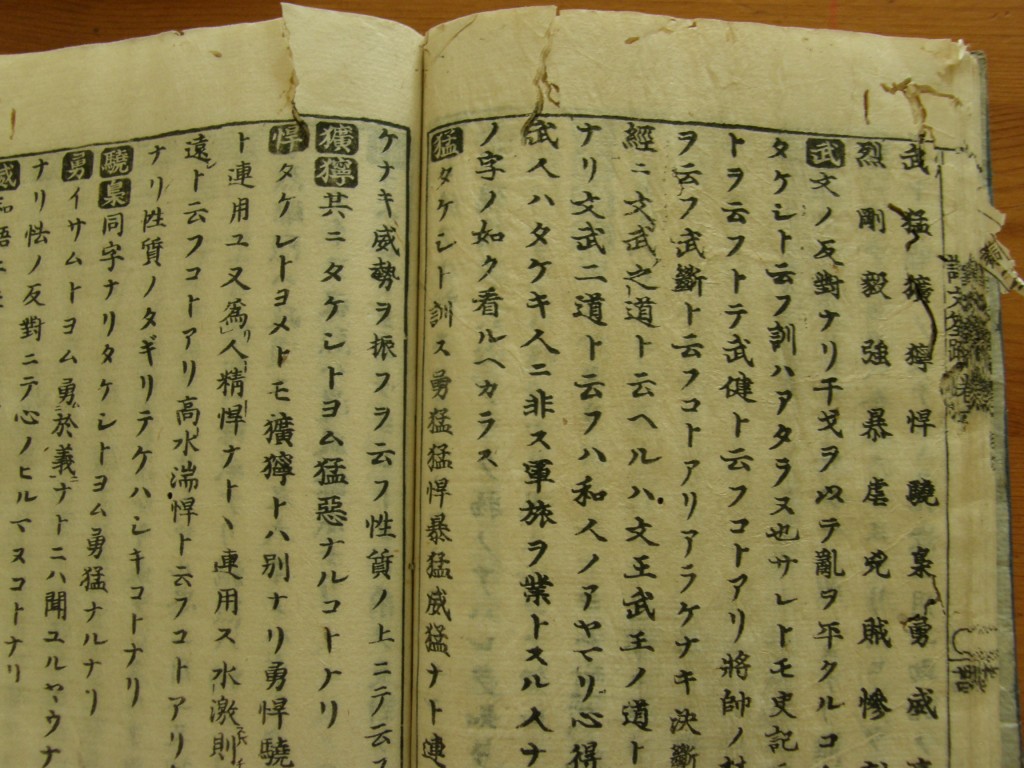 武猛獷獰悍驍梟勇威
烈剛毅強暴虐兇賊慘
武文ノ反對ナリ干戈ヲ以テ亂ヲ平クルコ
タケシト云フ訓ハアタラヌ也サレトモ史記
トヲ云フトテ武健ト云フコトアリ將帥ノ
ヲ云フ武斷ト云フコトアリアラケナキ決斷
經ニ文武之道ト云ヘルハ文王武王ノ道ト
ナリ文武二道ト云フハ和人ノアヤマリ心得
武人ハタケキ人ニ非ス軍旅ヲ業トスル人ナ
ノ字ノ如ク看ルヘカラス
猛タケシト訓ス勇猛猛悍暴猛威猛ナト連
ケナキ威勢ヲ振フヲ云フ性質ノ上ニテ云フ
獷獰共ニタケシトヨム猛惡ナルコトナリ
悍タケシトヨメトモ獷獰トハ別ナリ勇悍驍
ト連用ユ又爲人精悍ナトヽ連用ス水激則
遠ト云フコトアリ高水湍悍ト云フコトアリ
ナリ性質ノタギリテケハシキコトナリ
驍梟同字ナリタケシトヨム勇猛ナルナリ
勇イサムトヨム勇於義ナトニハ聞ユルヤウナ
ナリ怯ノ反對ニテ心ノヒルマヌコトナリ
威和語ニ